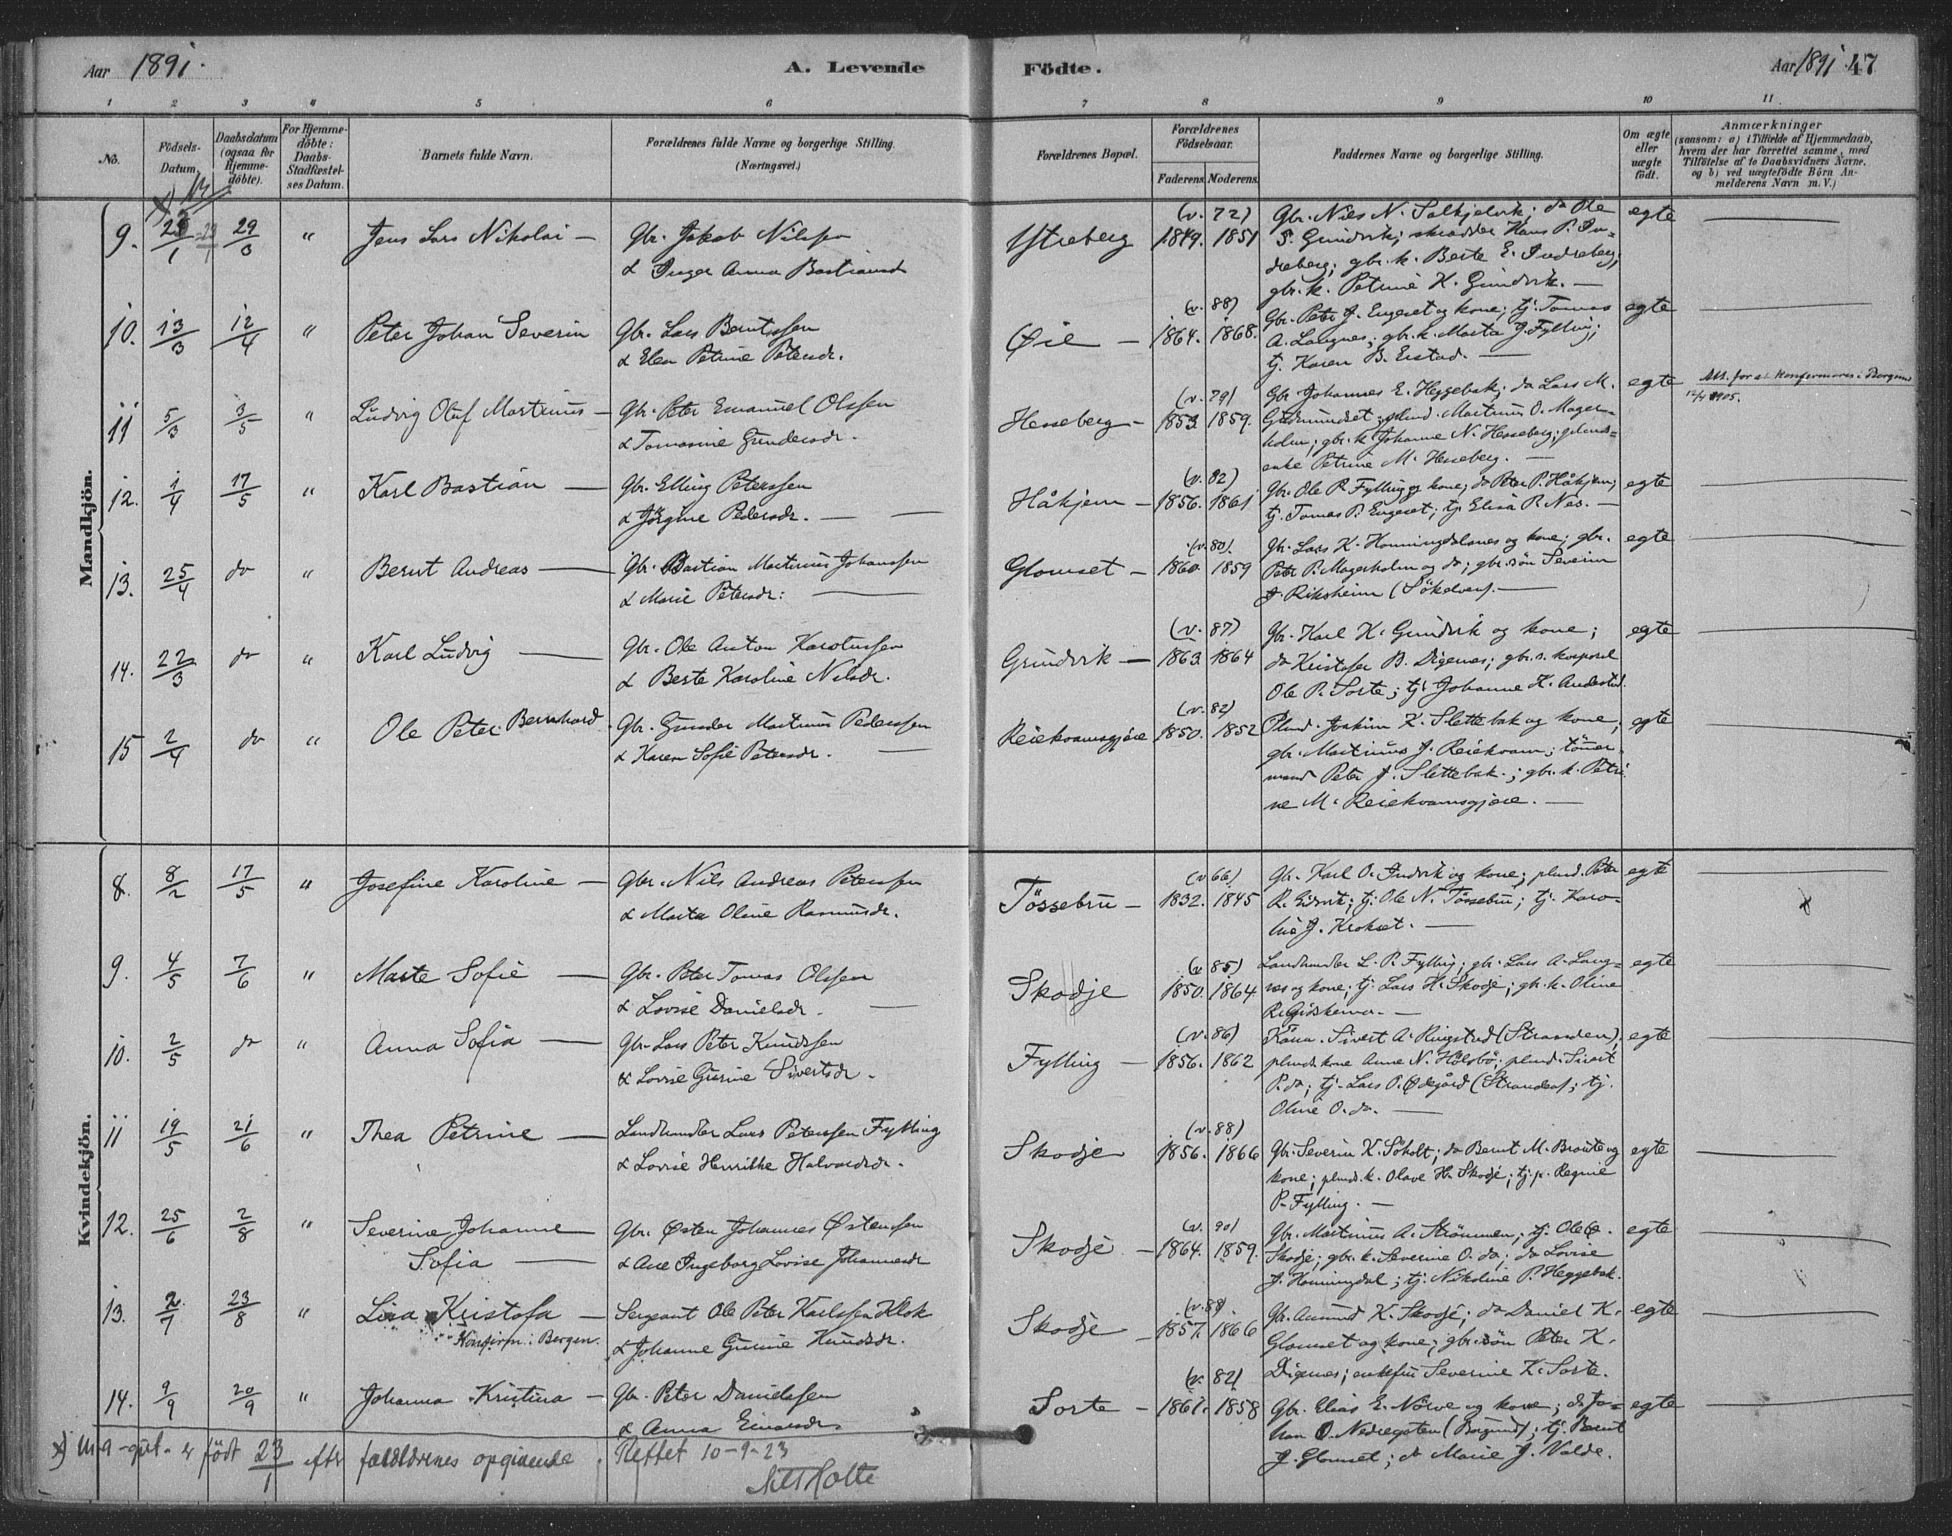 Aar 1891.
A. Levende
Födte.
Aar 1891. 47
1 2 3 4 5 6 7 8 9 10 11
No.
Födsels-
Datum.
Daabsdatum
(ogsaa for
Hjemme-
døbte).
For Hjemme-
døbte:
Daabs-
Stadfæstel-
ses Datum.
Barnets fulde Navn.
Forældrenes fulde Navne og borgerlige Stilling.
(Næringsvei.)
Forældrenes Bopæl.
Forældrenes
Födselsaar.
Faderens. Moderens.
Faddernes Navne og borgerlige Stilling.
Om ægte
eller
uægte
født.
Anmærkninger
(saasom: a) i Tilfælde af Hjemmedaab,
hvem der har forrettet samme, med
Tilföielse af to Daabsvidners Navne,
og b) ved uægtefödte Börn An-
melderens Navn m. V.)
Mandkjön.
9. 23/1 29/3 " Jens Lars Nikolai — Gbr. Jakob Nilssen
& Inger Anna Bastiansd.
Ystreberg (v. 72) 1849. 1851
Gbr. Nils N. Solkjelvik; do Ole
S. Grindvik; skrædder Hans P. In-
dreberg; gbr. k. Berte E. Indreberg;
gbr. k. Petrine K. Grindvik. —
egte
10. 13/3 12/4 " Peter Johan Severin Gbr. Lars Berntssen
& Elen Petrine Petersdr.
Øie — (v. 88) 1864. 1868.
Gbr. Peter J. Engeset og kone; tj. Tomas
A. Langnes; gbr. k. Marta J. Fylling;
tj. Karen B. Erstad. —
egte
11 5/3 3/5 " Ludvig Oluf Martinus — Gbr. Peter Emanuel Olssen
& Tomasine Gundersdr.
Hesseberg — (v. 79) 1853 1859.
Gbr. Johannes E. Heggebak; do Lars M.
Gudmundset; plmd. Martinus O. Mager-
holm; gbr. k. Johanne N. Hesseberg; plmds-
enke Petrine M. Hesseberg. —
egte
Att. for at konfirmeres i Borgund
1905.
12. 1/4 17/5 " Karl Bastian — Gbr. Elling Peterssen
& Jörgine Pedersdr. —
Håkjem — (v. 82) 1856. 1861
Gbr. Ole P. Fylling og kone; do Peter P. Håkjem;
tj. Tomas P. Engeset; tj. Elisa P. Nes. —
egte
13. 25/4 do " Bernt Andreas — Gbr. Bastian Martinus Johanssen
& Marie Petersdr: —
Glomset — (v. 80). 1860. 1859
Gbr. Lars K. Honningdalsnes og kone; gbr.
Peter P. Magerholm og do; gbr. sön Severin
J. Riksheim (Sökelven). —
egte
14. 22/3 do " Karl Ludvig — Gbr. Ole Anton Karolussen
& Berte Karoline Nilsdr.
Grindvik — (v. 87) 1863. 1864
Gbr. Karl K. Grindvik og kone;
do Kristofer B. Digenes; gbr. s. korporal
Ole P. Sorte; tj. Johanne K. Andestad.
egte
15 2/4 do " Ole Peter Bernhard. Gbr. Gunder Martinus Pederssen
& Karen Sofie Petersdr. —
Reiekvamsgjære (v. 82) 1850. 1852
Plmd. Joakim K. Slettebak og kone;
gbr. Martinus J. Reiekvam; tömer-
mand Peter J. Slettebak.; gbr. k. Petri
ne M. Reiekvamsgjære. —
egte
Kvindekjön.
8. 8/2 17/5 " Josefine Karoline — Gbr. Nils Andreas Peterssen
& Marta Oline Rasmusdr.
Tössebru — (v 66) 1832. 1845
Gbr. Karl O. Indvik og kone; plmd. Peter
R. Eidsvik; tj. Ole N. Tössebru; tj. Karo-
line J. Krokset. —
egte
9. 4/5 7/6 " Marte Sofie — Gbr. Peter Tomas Olssen
& Lovise Danielsdr. —
Skodje (v 85) 1850. 1864
Landhandler L. P. Fylling; gbr. Lars A. Lang-
nes og kone; tj. Lars H. Skodje; gbr. k. Oline
R. Gjidskemo. —
egte
10. 2/5 do " Anna Sofia — Gbr. Lars Peter Knudssen
& Lovise Gurine Sivertsdr.
Fylling — (v. 86) 1856. 1862
Kaarm. Sivert A. Ringstad (Stranden);
plmds. kone Anne N. Holsbö; plmd. Sivert
P. do; tj. Lars O. Ødegård (Stranden); tj.
Oline O. do. —
egte
11 19/5 21/6 " Thea Petrine — Landhandler Lars Peterssen Fylling
& Lovise Henrikke Halvardsdr.
Skodje (v. 88) 1856. 1866
Gbr. Severin K. Söholt; do Bernt M. Brauteset og
kone; plmds. k. Olave H. Skodje; tj. p. Regine
P. Fylling. —
egte
12. 25/6 2/8 " Severine Johanne
Sofia — Gbr. Østen Johannes Østenssen
& Ane Ingeborg Lovise Johannesdr
Skodje — (v. 90) 1864. 1859.
Gbr. Martinus A. Strömmen; tj. Ole O.
Skodje; gbr. k. Severine O. do; do Lovise
J. Honningdal; tj. Nikoline P. Heggebak.
egte
13. 2/7 23/8 " Lina Kristofa —
Konfirm. i Bergen.
Sergeant Ole Peter Karlssen Klok
& Johanne Gurine Knudsdr.
Skodje (v. 88). 1857. 1866
Gbr. Amund K. Skodje; do Daniel K.
Glomset og kone; gbr. sön Peter K.
Digenes; enkefru Severine K. Sorte.
egte
14. 9/9 20/9 " Johanna Kristina — Gbr. Peter Danielssen
& Anna Einarsdr
Sorte — (v. 82) 1861. 1858
Gbr. Elias E. Nörve og kone; do Jo-
han O. Nedregoten (Borgund); tj. Bernt
J. Glomset; do Marie J. Valde.
egte
x) No 9 - gut - er födt 23/1 efter forældrenes opgivende. Rettet 10-9-23
Nils Holte